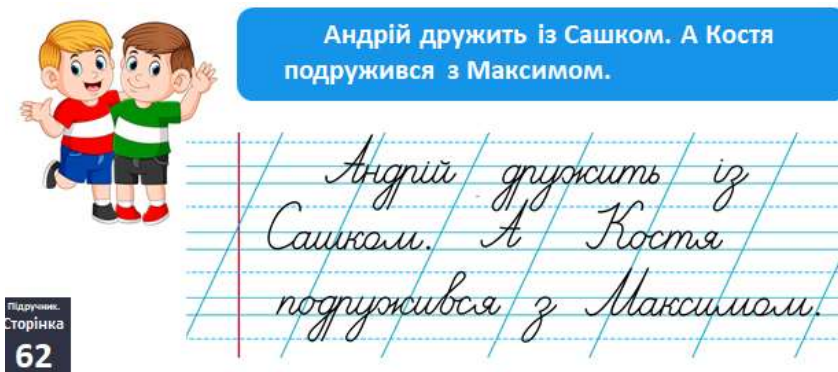 Андрій дружить із Сашком. А Костя
подружився з Максимом.
Андрій дружить із
Сашком. А Костя
подружився з Максимом.
Підручник.
Сторінка
62